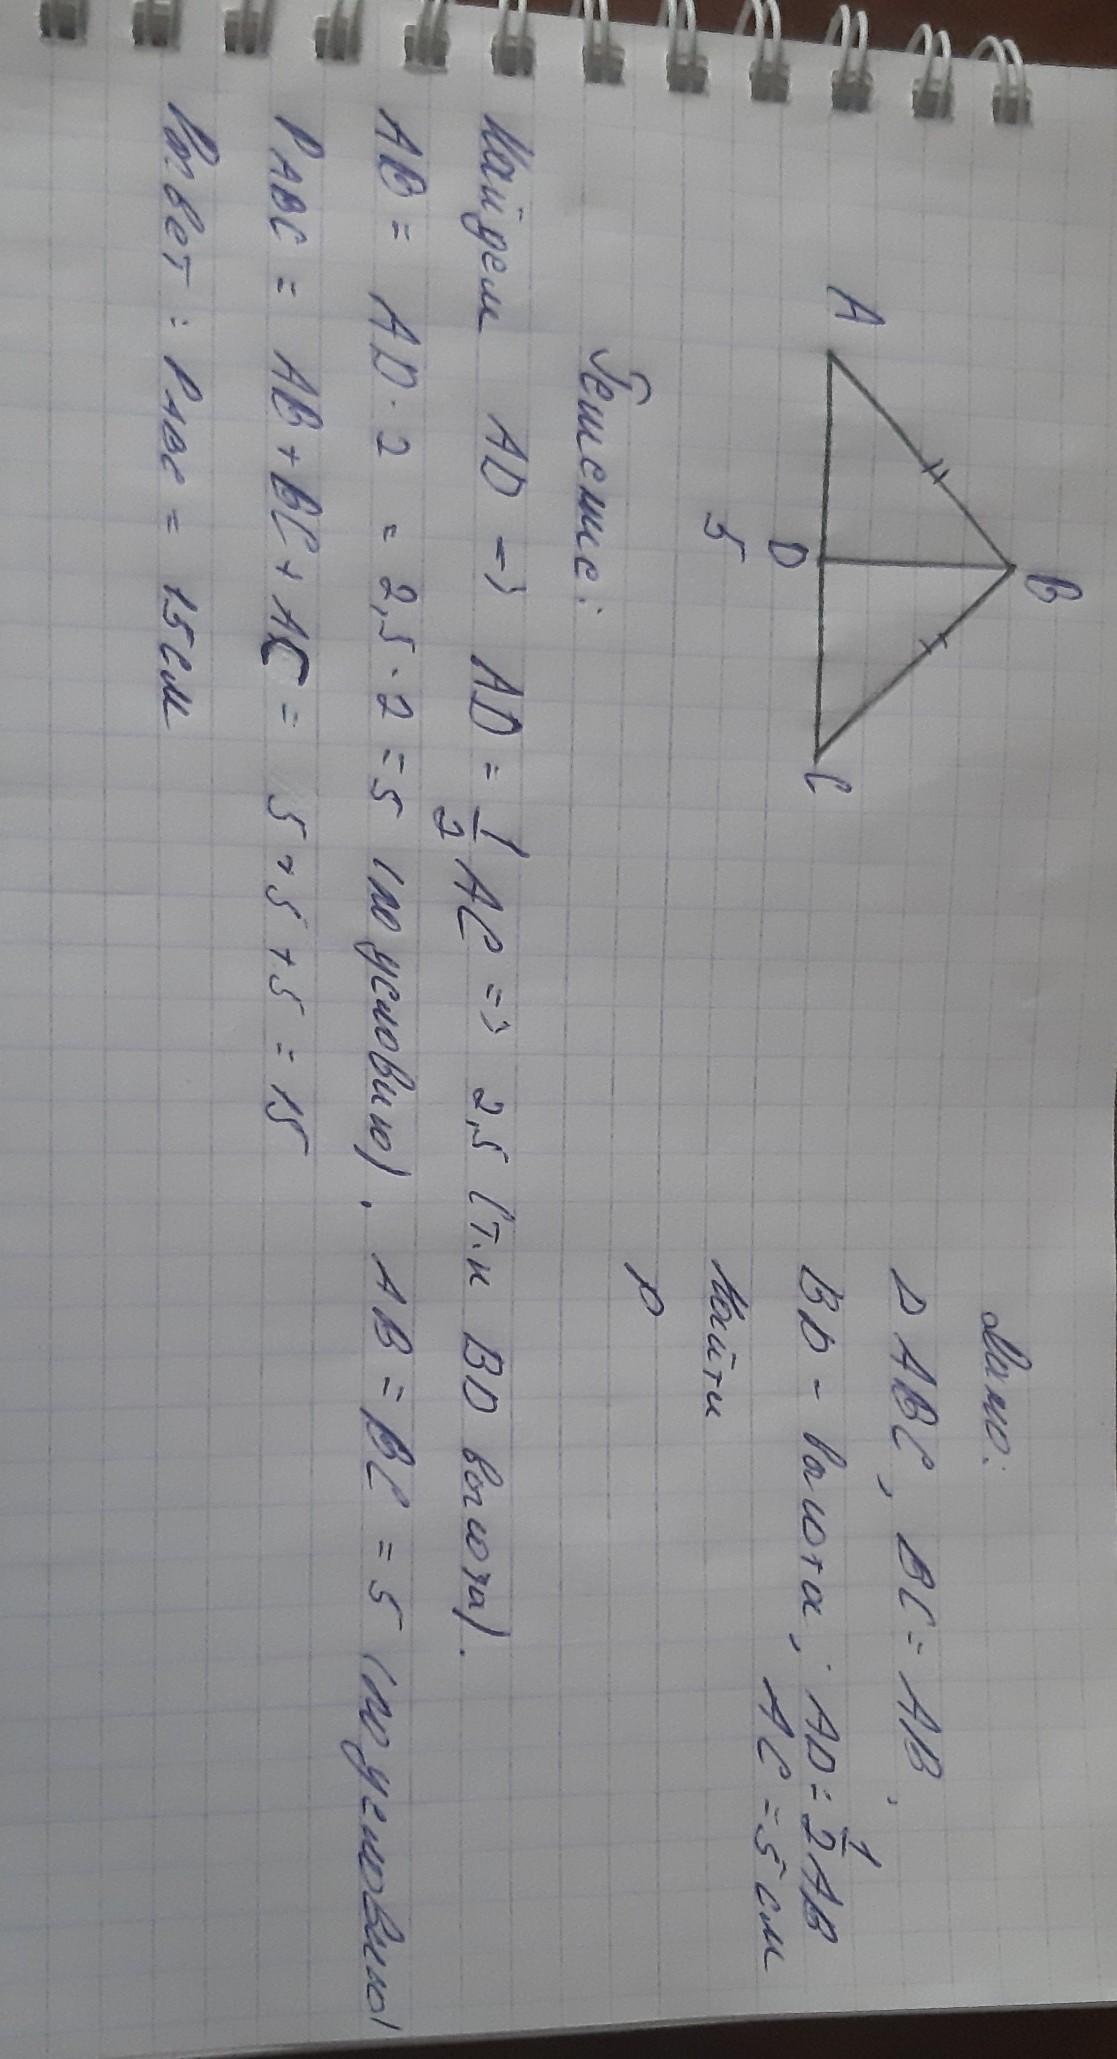 B
A
C
D
5
Дано:
Δ ABC, BC = AB,
BD - высота, AD = 1/2 AB
AC = 5 см
Найти
P
Решение:
Найдем AD => AD = 1/2 AC => 2,5 (т.к BD высота).
AB = AD · 2 = 2,5 · 2 = 5 (по условию). AB = BC = 5 (по условию)
PABC = AB + BC + AC = 5 + 5 + 5 = 15
Ответ: PABC = 15 см